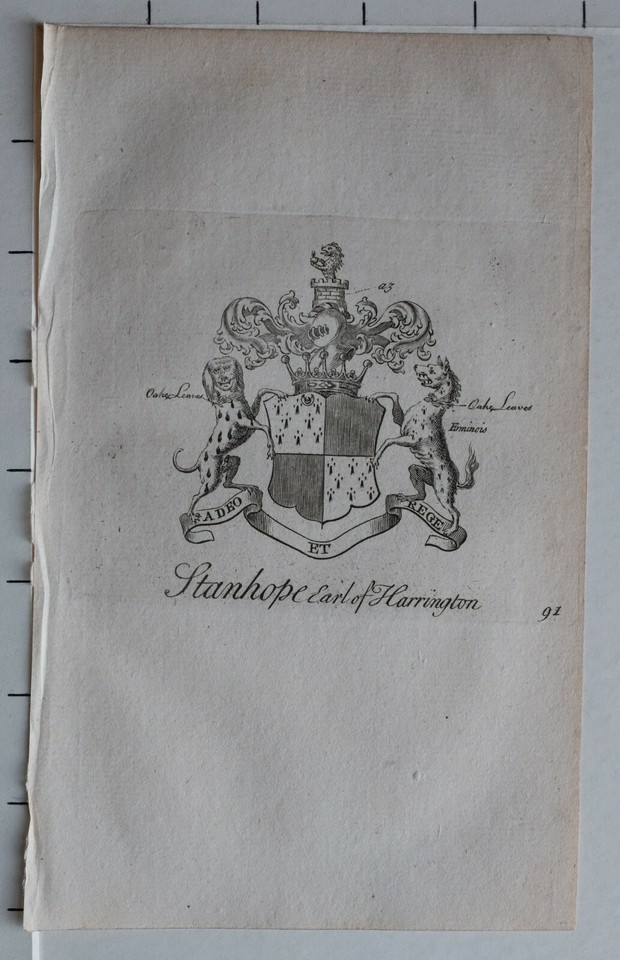 az
Oake Leaves
Oake Leaves
Erminois
A DEO
ET
REGE
Stanhope Earl of Harrington
91